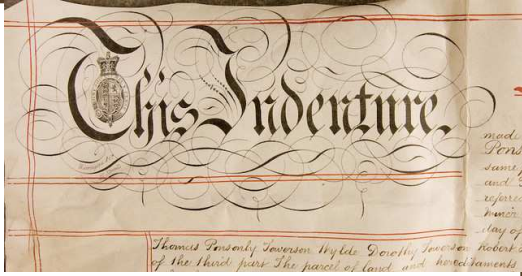 This Indenture,
made
Pons
same
and
referred
day of
Thomas Ponsonby Towerson Wylde Dorothy Towerson Robert
of the third part The parcel of land and hereditaments